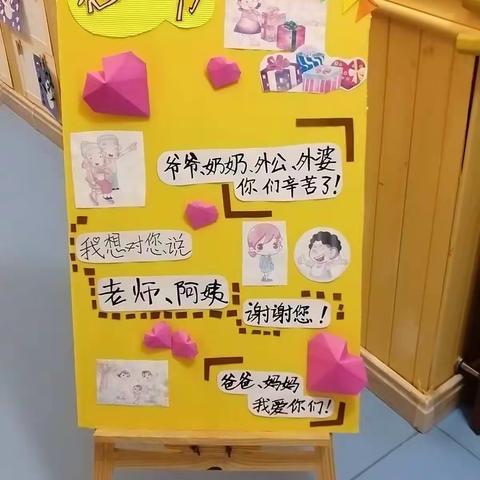 爷爷、奶奶、外公、外婆
你们辛苦了!
我想对您说
老师、阿姨
谢谢您!
爸爸、妈妈
我爱你们!